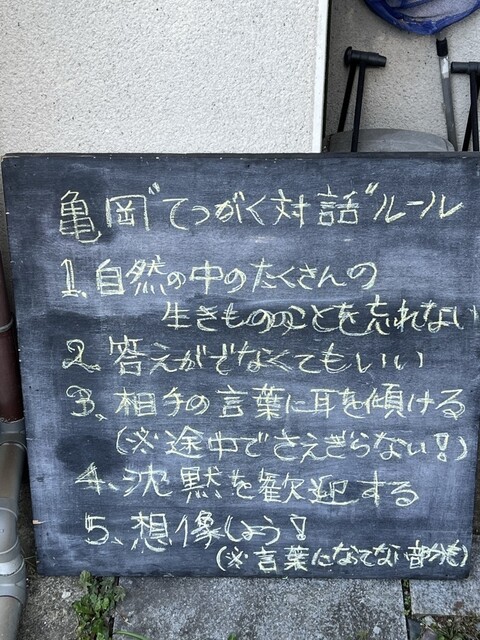 亀岡"てつがく対話"ルール
1、自然の中のたくさんの
生きもののことを忘れない
2、答えがでなくてもいい
3、相手の言葉に耳を傾ける
(※途中でさえぎらない!)
4、沈黙を歓迎する
5、想像しよう!
(※言葉になってない部分も)